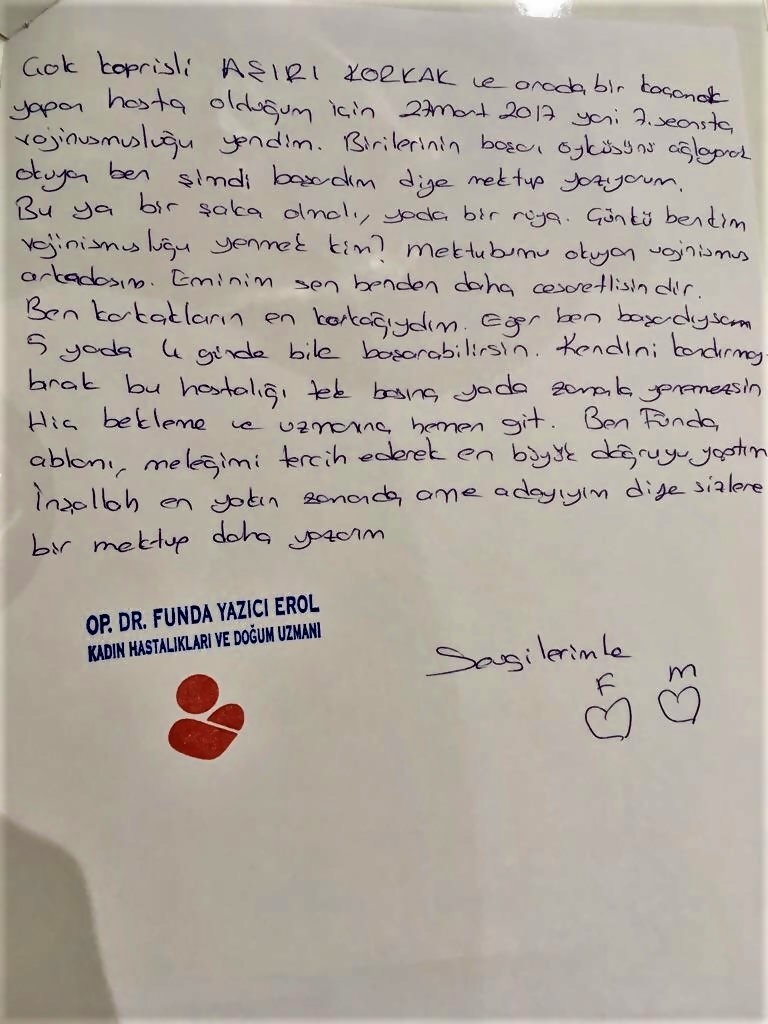 Çok kaprisli AŞIRI KORKAK ve arada bir kaçamak
yapan hasta olduğum için 27 Mart 2017 yani 7. seansta
vajinusmusluğu yendim. Birilerinin başarı öyküsünü ağlayarak
okuyan ben şimdi başardım diye mektup yazıyorum.
Bu ya bir şaka olmalı, yada bir rüya. Çünkü ben kim
vajinismusluğu yenmek kim? Mektubumu okuyan vajinismus
arkadaşım. Eminim sen benden daha cesaretlisindir.
Ben korkakların en korkağıydım. Eğer ben başardıysam
5 yada 4 günde bile başarabilirsin. Kendini kandırmayı
bırak bu hastalığı tek başına yada zamanla yenemezsin
Hiç bekleme ve uzmanına hemen git. Ben Funda
ablamı, meleğimi tercih ederek en büyük doğruyu yaptım
İnşallah en yakın zamanda anne adayıyım diye sizlere
bir mektup daha yazarım
OP. DR. FUNDA YAZICI EROL
KADIN HASTALIKLARI VE DOĞUM UZMANI
Sevgilerimle
F M